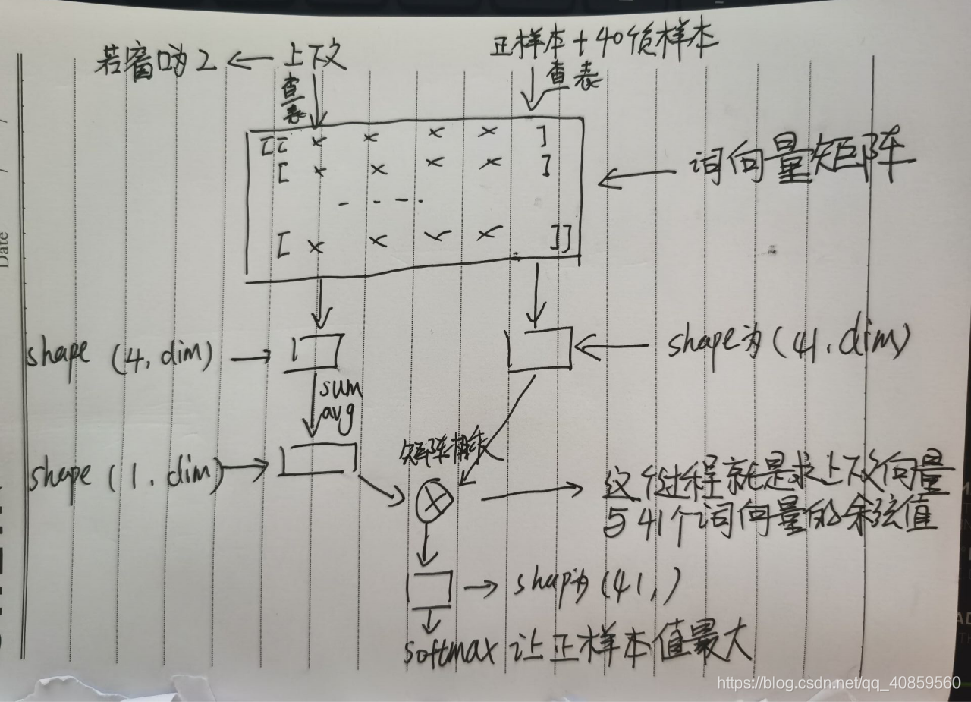 若窗口为2 ← 上下文
正样本+40负样本
查表
查表
[[ × × × × ]
[ × × × × ]
- - - .
[ × × × × ]]
词向量矩阵
shape (4, dim)
shape为(41, dim)
sum
avg
shape (1, dim)
矩阵相乘
这个过程就是求上下文向量
与41个词向量的余弦值
shape为(41,)
softmax 让正样本值最大
Date
https://blog.csdn.net/qq_40859560